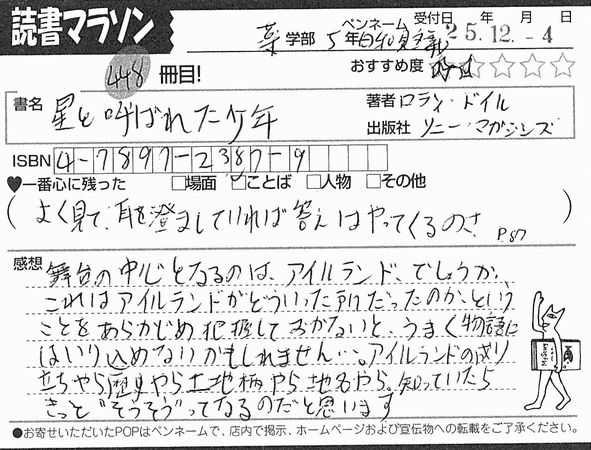 読書マラソン
ペンネーム 受付日 年 月 日
薬学部 5年 25.12.-4
448冊目! おすすめ度 ☆☆☆☆
書名 星と呼ばれた少年
著者 ロディ・ドイル
出版社 ソニー・マガジンズ
ISBN 4-7897-2387-9
♥一番心に残った □場面 ☑ことば □人物 □その他
(よく見て、耳を澄ましていれば答えはやってくるのさ P87)
感想 舞台の中心となるのは、アイルランド、でしょうか。
これはアイルランドがどういった所だったのか、という
ことをあらかじめ把握しておかないと、うまく物語に
はいり込めないかもしれません…。アイルランドの成り
立ちやら歴史やら土地柄やら地名やら。知っていたら
きっと"そうそう"ってなるのだと思います
●お寄せいただいたPOPはペンネームで、店内で掲示、ホームページおよび宣伝物への転載をご了承ください。